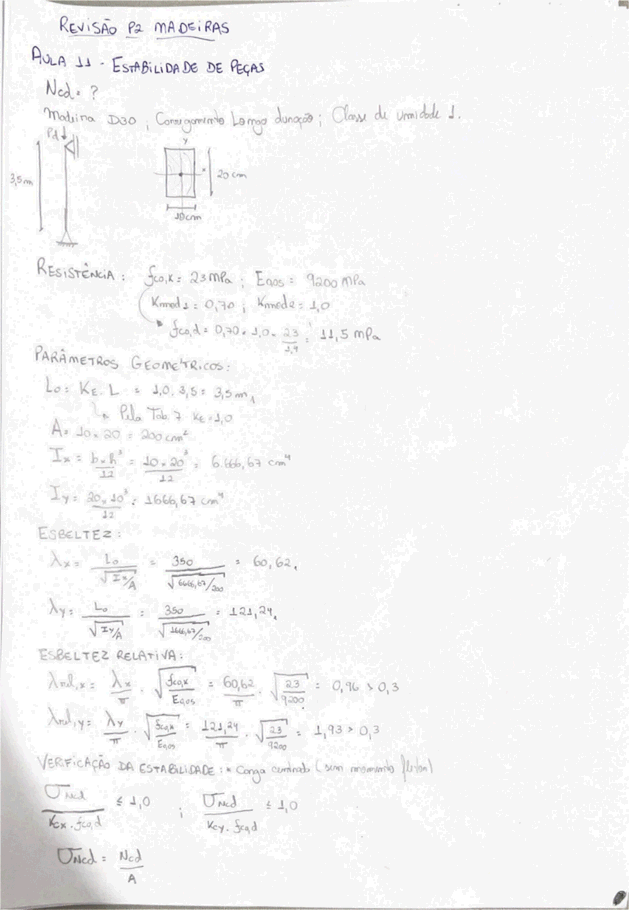 REVISÃO P2 MADEIRAS
AULA 11 - ESTABILIDADE DE PEÇAS
Ncd = ?
Madeira D30 ; Carregamento Longa duração ; Classe de umidade 1.
Pd
3,5m
y
x
20 cm
10cm
RESISTÊNCIA : fc0,k = 23 MPa ; E0,05 = 9200 MPa
Kmod1 = 0,70 ; Kmod2 = 1,0
fc0,d = 0,70 . 1,0 . 23/1,4 = 11,5 MPa
PARÂMETROS GEOMÉTRICOS :
L0 = KE . L = 1,0 . 3,5 = 3,5 m
Pela Tab. 7 KE = 1,0
A = 10 × 20 = 200 cm²
Ix = b×h³/12 = 10×20³/12 = 6.666,67 cm⁴
Iy = 20×10³/12 = 1666,67 cm⁴
ESBELTEZ :
λx = L0/√(Ix/A) = 350/√(6666,67/200) = 60,62
λy = L0/√(Iy/A) = 350/√(1666,67/200) = 121,24
ESBELTEZ RELATIVA :
λrel,x = λx/π . √(fc0,k/E0,05) = 60,62/π . √(23/9200) = 0,96 > 0,3
λrel,y = λy/π . √(fc0,k/E0,05) = 121,24/π . √(23/9200) = 1,93 > 0,3
VERIFICAÇÃO DA ESTABILIDADE : * Carga centrada (sem momento fletor)
σNcd/(Kcx . fc0,d) ≤ 1,0 ; σNcd/(Kcy . fc0,d) ≤ 1,0
σNcd = Ncd/A